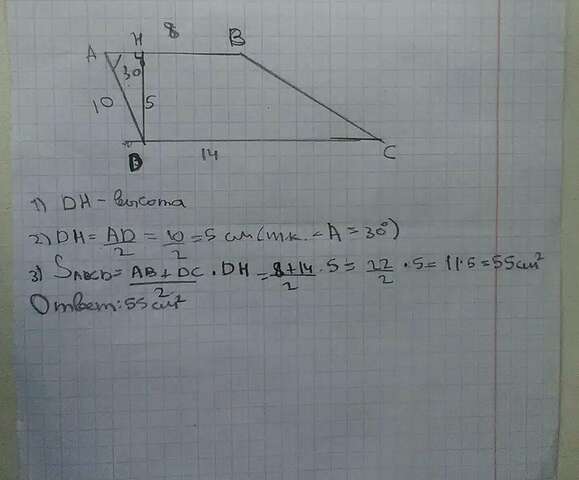 8
A H B
30
10 5
D 14 C
1) DH - высота
2) DH = AD/2 = 10/2 = 5 см (т.к. ∠A = 30°)
3) SABCD = AB + DC/2 · DH = 8+14/2 · 5 = 22/2 · 5 = 11·5 = 55 см²
Ответ: 55 см²